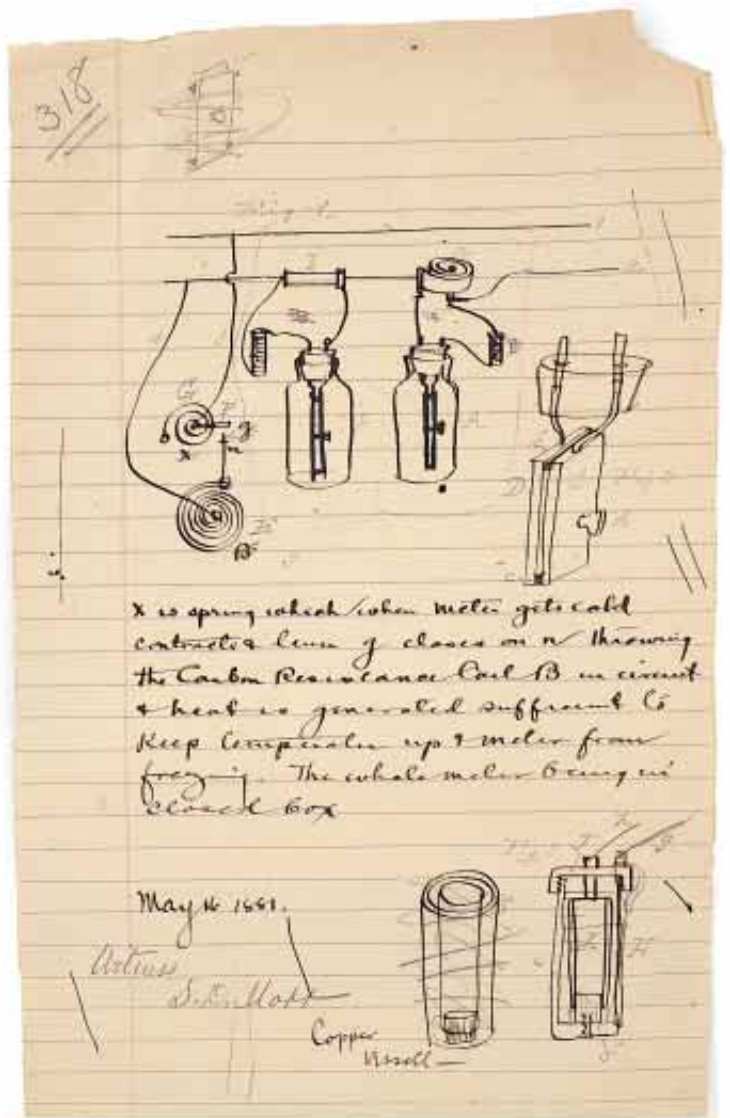 318
Fig 1.
G
P
g
x
n
B
A
D
X is spring which when meter gets cold
contracts & lever g closes on n throwing
the Carbon Resistance Coil B in circuit
& heat is generated sufficient to
Keep temperature up & meter from
freezing. The whole meter being in
closed box
May 16 1881.
Witness
Copper
Vessell —